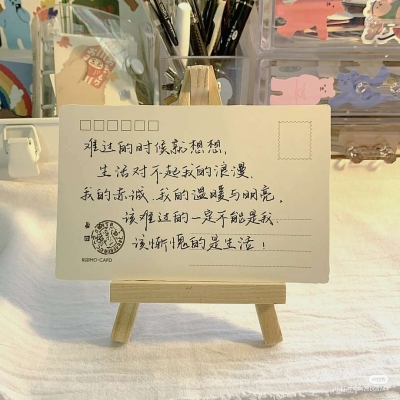 难过的时候就想想,
生活对不起我的浪漫.
我的赤诚.我的温暖与明亮,
该难过的一定不能是我.
该惭愧的是生活!
KUIMO·CARD